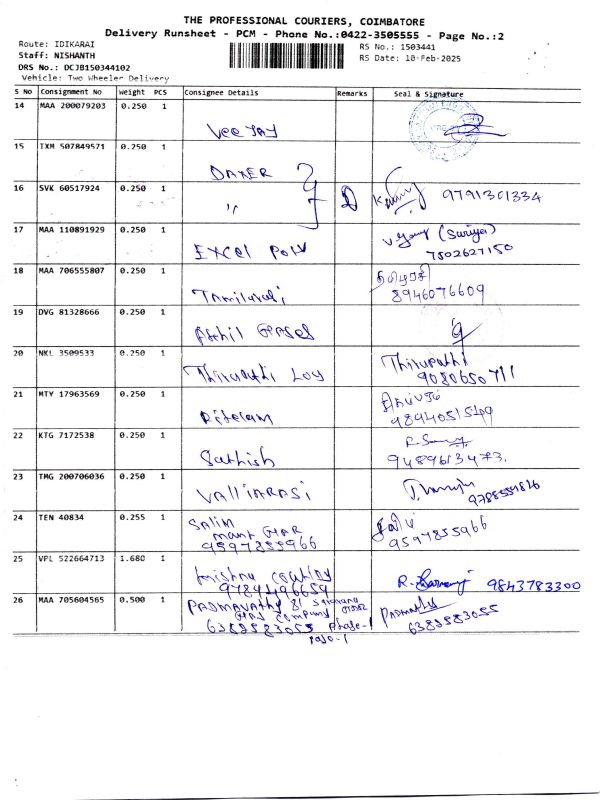 THE PROFESSIONAL COURIERS, COIMBATORE
Delivery Runsheet - PCM - Phone No.:0422-3505555 - Page No.:2
Route: IDIKARAI
Staff: NISHANTH
DRS No.: DCJB150344102
Vehicle: Two Wheeler Delivery
RS No.: 1503441
RS Date: 10-Feb-2025
S No Consignment No Weight PCS Consignee Details Remarks Seal & Signature
14 MAA 200079203 0.250 1
Vee JAY
15 TXM 507849571 0.250 1
16 SVK 60517924 0.250 1 9791301334
17 MAA 110891929 0.250 1 (Suriya)
EXCEL POLY 7502627150
18 MAA 706555807 0.250 1 தமிழரசி
Tamilarasi 8946076609
19 DVG 81328666 0.250 1
20 NKL 3509533 0.250 1 Thirupathi
Thirupathi 9080650711
21 MTY 17963569 0.250 1
22 KTG 7172538 0.250 1
Sathish 9489613473.
23 TMG 200706036 0.250 1
VALLIARASI
24 TEN 40834 0.255 1 SALIM
9597855966 9597855966
25 VPL 522664713 1.680 1
Krishna 9843783300
9784496659
26 MAA 705604565 0.500 1 PADMAVATHY Padmavathy
Company
6382583055 Phase-1 6382583055